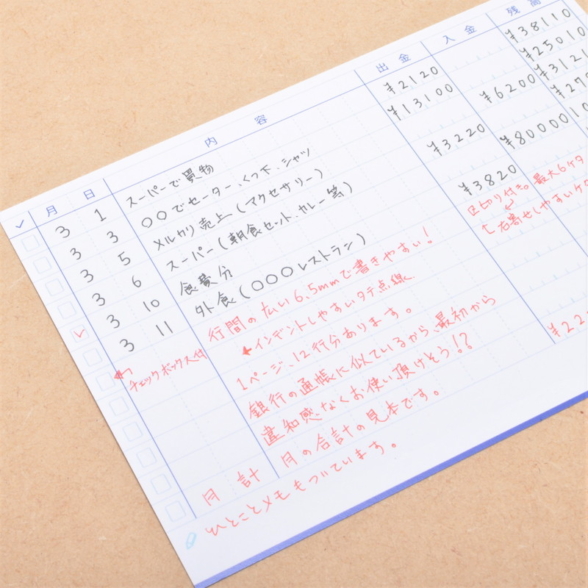 ✓ 月 日 内容 出金 入金 残高
3 1 スーパーで買物 ¥2120 ¥38110
3 3 〇〇でセーター、くつ下、シャツ ¥13100 ¥25010
3 5 メルカリ売上（アクセサリー） ¥6200
3 6 スーパー（朝食セット、カレー等） ¥3220
3 10 食費分 ¥80000
3 11 外食（〇〇〇レストラン） ¥3820
行間の広い6.5mmで書きやすい！
区切り付き 最大6ケタ
←インデントしやすいタテ点線
右寄せしやすい
チェックボックス付
1ページ、12行分あります。
銀行の通帳に似ているから、最初から
違和感なくお使い頂けそう！？
月 計 月の合計の見本です。
ひとことメモもついています。